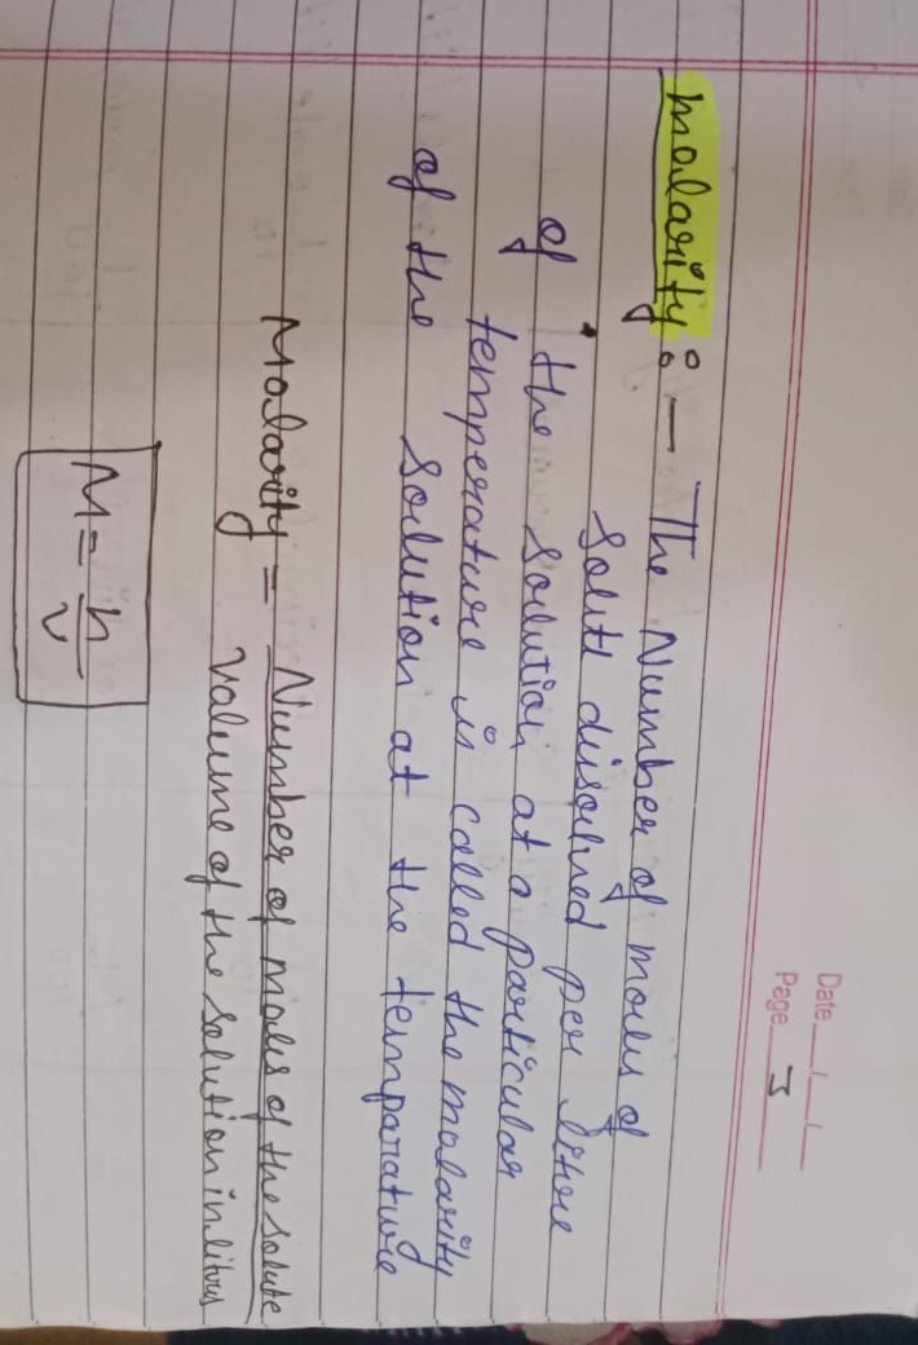 Date __/__/__
Page 3
Molarity :- The Number of moles of
solute dissolved per litre
of the solution at a particular
temperature is called the molarity
of the solution at the temparature
Molarity = Number of moles of the solute
Volume of the solution in litres
M = n
V